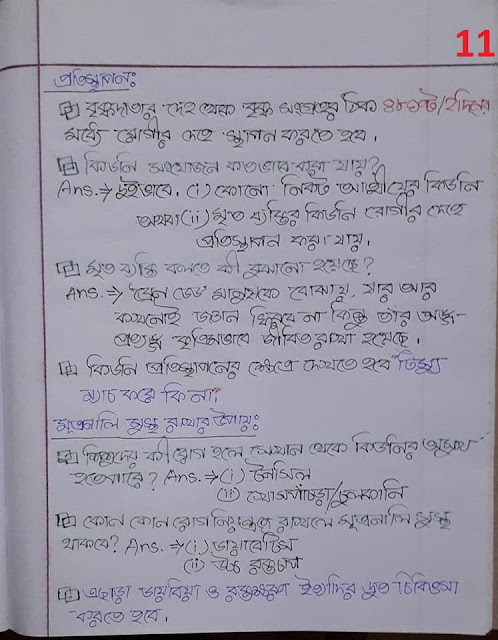 11
প্রতিস্থাপন:
বৃক্কদাতার দেহ থেকে বৃক্ক সংগ্রহের ঠিক ৪৮ঘণ্টা/২দিনের
মধ্যে রোগীর দেহে স্থাপন করতে হবে।
কিডনি সংযোজন কতভাবে করা যায়?
Ans.→ দুইভাবে। (i) কোনো নিকট আত্মীয়ের কিডনি
অথবা (ii) মৃত ব্যক্তির কিডনি রোগীর দেহে
প্রতিস্থাপন করা যায়।
মৃত ব্যক্তি বলতে কী বুঝানো হয়েছে?
Ans.→ 'ব্রেন ডেড' মানুষকে বোঝায়, যার আর
কখনোই জ্ঞান ফিরবে না কিন্তু তার অঙ্গ-
প্রত্যঙ্গ কৃত্রিমভাবে জীবিত রাখা হয়েছে।
কিডনি প্রতিস্থাপনের ক্ষেত্রে দেখতে হবে টিস্যু
ম্যাচ করে কি না।
মূত্রনালি সুস্থ রাখার উপায়:
শিশুদের কী রোগ হলে সেখান থেকে কিডনির অসুখ
হতে পারে? Ans.→ (i) টনসিল
(ii) খোসপাঁচড়া/চুলকানি
কোন কোন রোগ নিয়ন্ত্রণে রাখলে মূত্রনালি সুস্থ
থাকবে? Ans.→ (i) ডায়াবেটিস
(ii) উচ্চ রক্তচাপ
এছাড়া ডায়রিয়া ও রক্তক্ষরণ ইত্যাদির দ্রুত চিকিৎসা
করতে হবে।